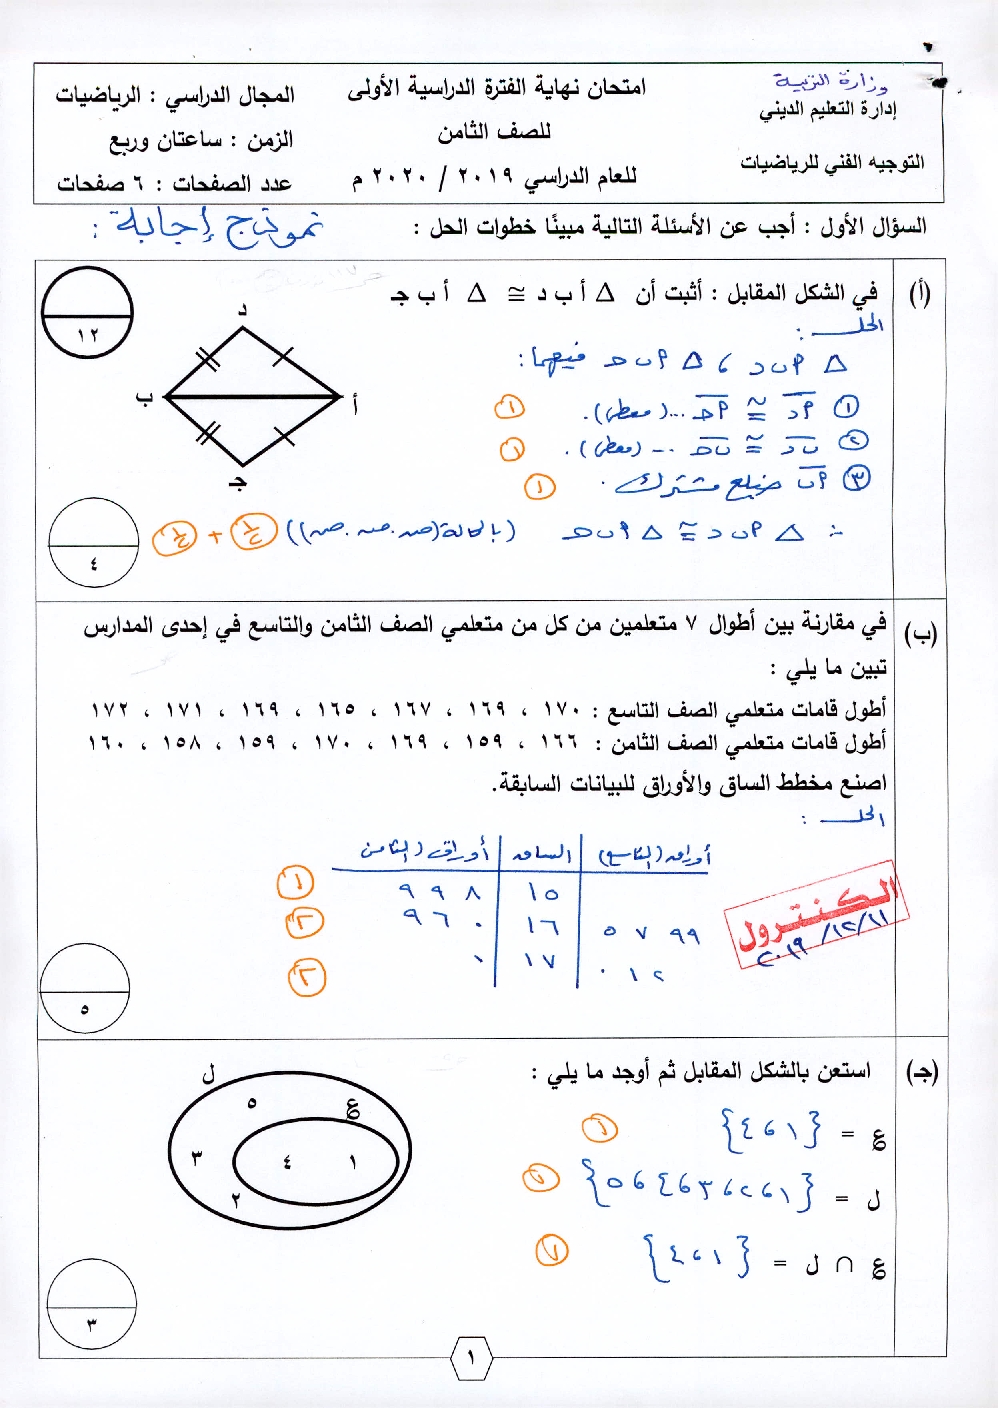 وزارة التربية
إدارة التعليم الديني
التوجيه الفني للرياضيات
امتحان نهاية الفترة الدراسية الأولى
للصف الثامن
للعام الدراسي ٢٠١٩ / ٢٠٢٠ م
المجال الدراسي : الرياضيات
الزمن : ساعتان وربع
عدد الصفحات : ٦ صفحات
السؤال الأول : أجب عن الأسئلة التالية مبينًا خطوات الحل : نموذج إجابة :
(أ) في الشكل المقابل : أثبت أن Δ أ ب د ≅ Δ أ ب جـ
١٢
الحل :
د
ب
أ
جـ
Δ أ ب د ، Δ أ ب حـ فيهما :
① أد ≅ أحـ ... (معطى). ①
② ب د ≅ ب حـ ... (معطى). ①
③ أب ضلع مشترك . ①
∴ Δ أ ب د ≅ Δ أ ب حـ (بالحالة (ض . ض . ض)) ½ + ½
٤
(ب) في مقارنة بين أطوال ٧ متعلمين من كل من متعلمي الصف الثامن والتاسع في إحدى المدارس
تبين ما يلي :
أطول قامات متعلمي الصف التاسع : ١٧٠ ، ١٦٩ ، ١٦٧ ، ١٦٥ ، ١٦٩ ، ١٧١ ، ١٧٢
أطول قامات متعلمي الصف الثامن : ١٦٦ ، ١٥٩ ، ١٦٩ ، ١٧٠ ، ١٥٩ ، ١٥٨ ، ١٦٠
اصنع مخطط الساق والأوراق للبيانات السابقة.
الحل :
أوراق (التاسع) الساق أوراق (الثامن
١٥ ٨ ٩ ٩ ①
٩٩ ٧ ٥ ١٦ ٠ ٦ ٩ ②
٢ ١ ٠ ١٧ ٠ ②
الكنترول
٢٠١٩/١٢/١١
٥
(جـ) استعن بالشكل المقابل ثم أوجد ما يلي :
ل
ع
٥
٣
٤
١
٢
ع = {١ ، ٤} ①
ل = {١ ، ٢ ، ٣ ، ٤ ، ٥} ①
ع ∩ ل = {١ ، ٤} ①
٣
١